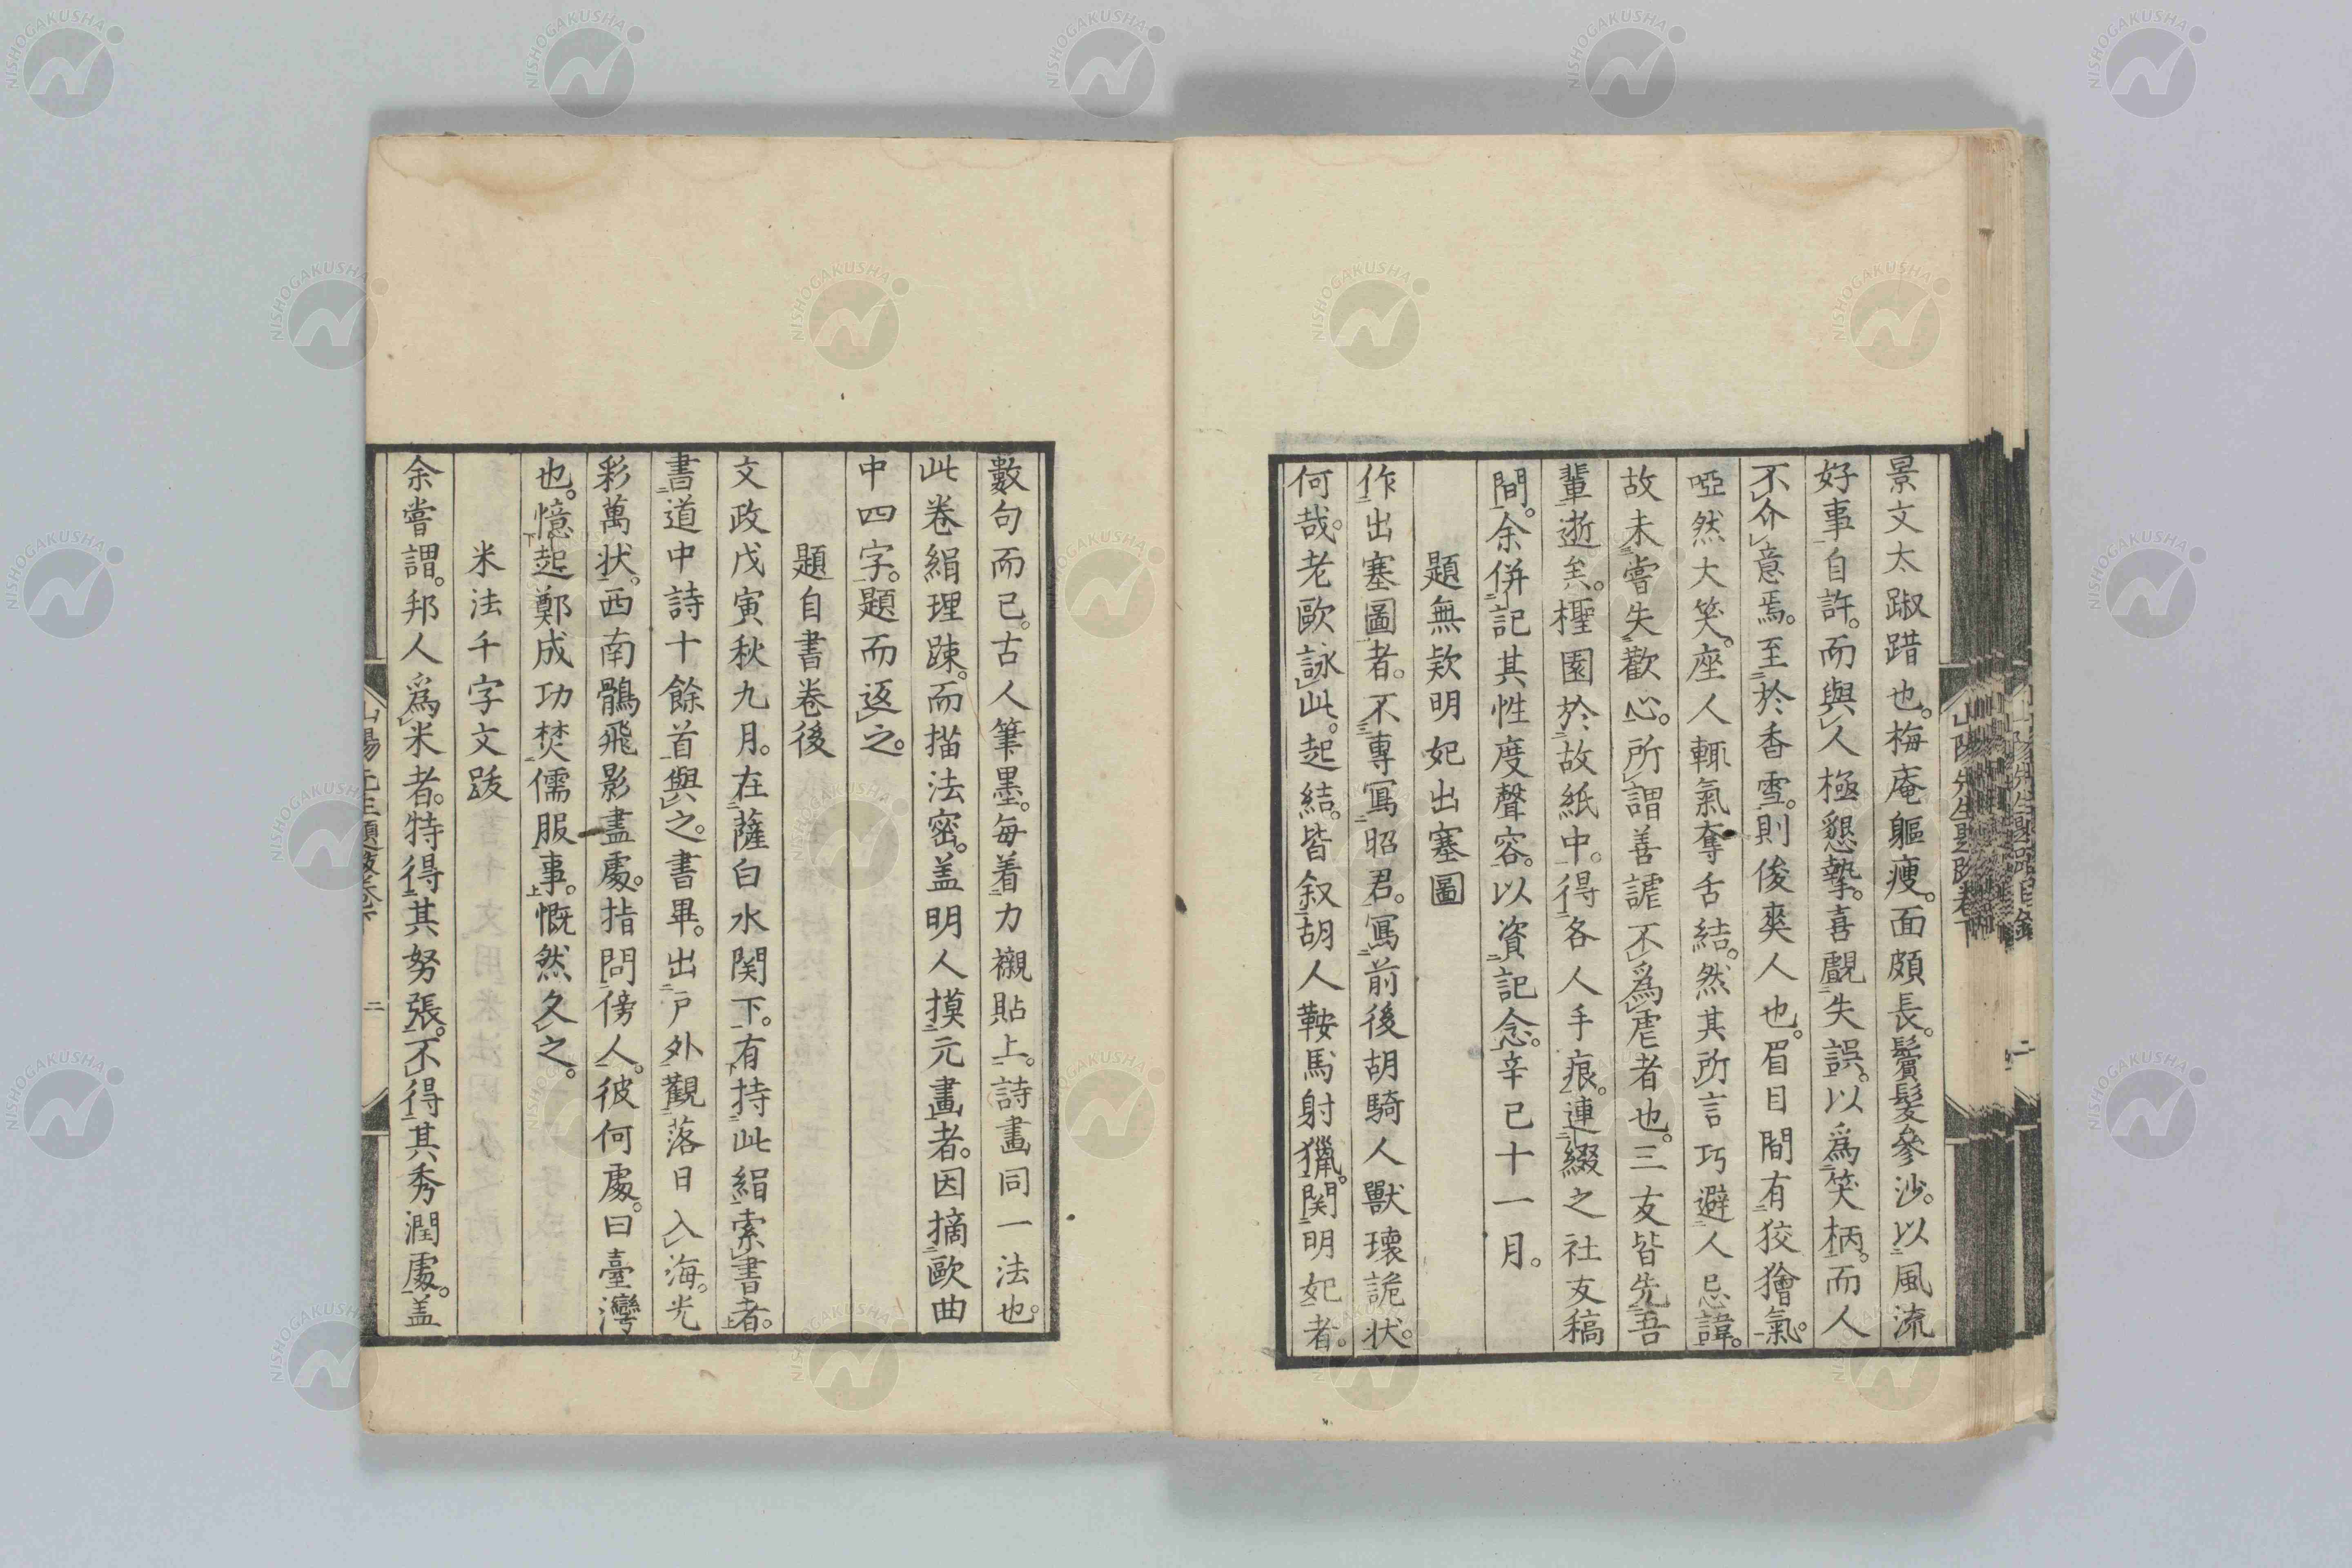 景文太踧踖也。梅庵軀瘦。面頗長。鬢髮參沙。以風流
好事自許。而與人極懇摯。喜覵失誤。以爲笑柄。而人
不介意焉。至於香雪。則俊爽人也。眉目間有狡獪氣。
啞然大笑。座人輒氣奪舌結。然其所言巧避人忌諱。
故未嘗失歡心。所謂善謔不爲虐者也。三友皆先吾
輩逝矣。檉園於故紙中。得各人手痕。連綴之社友稿
間。余併記其性度聲容。以資記念。辛巳十一月。
題無欵明妃出塞圖
作出塞圖者。不專寫昭君。寫前後胡騎人獸瓌詭状。
何哉。老歐詠此。起結。皆叙胡人鞍馬射獵。関明妃者。
數句而已。古人筆墨。每着力襯貼上。詩畫同一法也。
此卷絹理踈。而描法密。盖明人摸元畫者。因摘歐曲
中四字。題而返之。
題自書卷後
文政戊寅秋九月。在薩白水関下。有持此絹索書者。
書道中詩十餘首與之。書畢。出戸外觀落日入海。光
彩萬状。西南鶻飛影盡處。指問傍人。彼何處。曰臺灣
也。憶起鄭成功焚儒服事。慨然久之。
米法千字文跋
余嘗謂。邦人爲米者。特得其努張。不得其秀潤處。盖
山陽先生題跋卷下
二
NISHOGAKUSHA